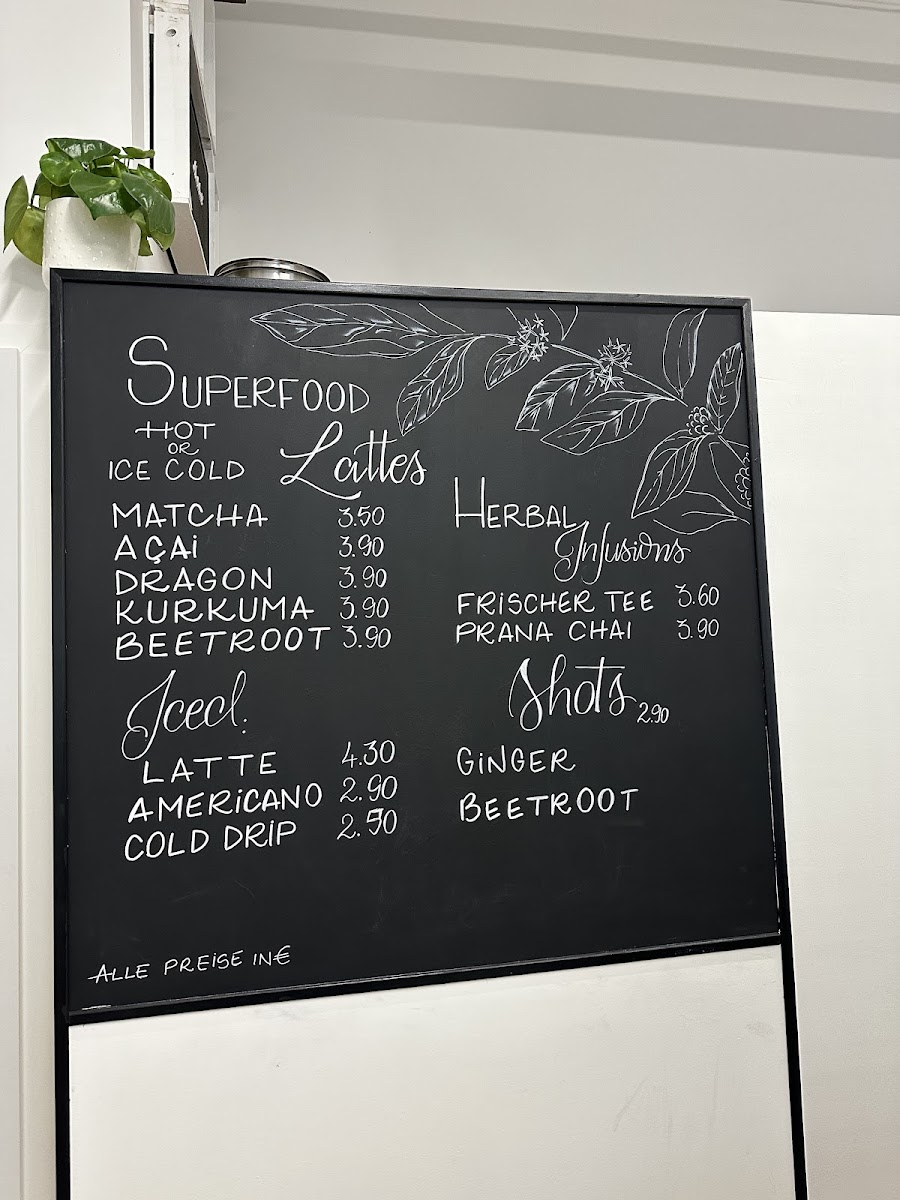 SUPERFOOD
HOT
OR
ICE COLD
Lattes
MATCHA 3.50
AÇAi 3.90
DRAGON 3.90
KURKUMA 3.90
BEETROOT 3.90
Iced.
LATTE 4.30
AMERiCANO 2.90
COLD DRiP 2.50
ALLE PREiSE IN €
HERBAL
Infusions
FRiSCHER TEE 3.60
PRANA CHAI 3.90
Shots 2.90
GiNGER
BEETROOT